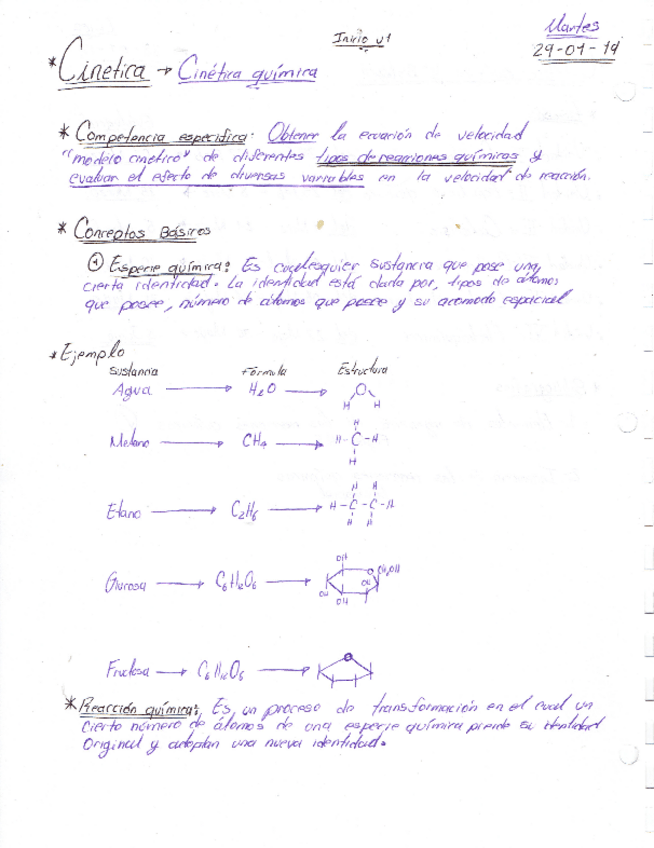 Martes
Inicio u1
29-01-19
*Cinetica → Cinética química
* Competencia especifica: Obtener la ecuación de velocidad
"modelo cinetico" de diferentes tipos de reacciones químicas y
evaluar el efecto de diversas variables en la velocidad de reacción.
* Conceptos Básicos
① Especie química: Es cualesquier sustancia que pose una
cierta identidad. La identidad está dada por, tipos de átomos
que posee, número de átomos que posee y su acomodo espacial
*Ejemplo
Sustancia Fórmula Estructura
Agua → H2O → O
H H
Metano → CH4 → H-C-H
H
H
Etano → C2H6 → H-C-C-H
H H
H H
Glucosa → C6H12O6 →
OH
CH2OH
OH
OH
OH
Fructosa → C6H12O6 →
*Reacción química: Es, un proceso de transformación en el cual un
cierto número de átomos de una especie química pierde su identidad
Original y adoptan una nueva identidad.